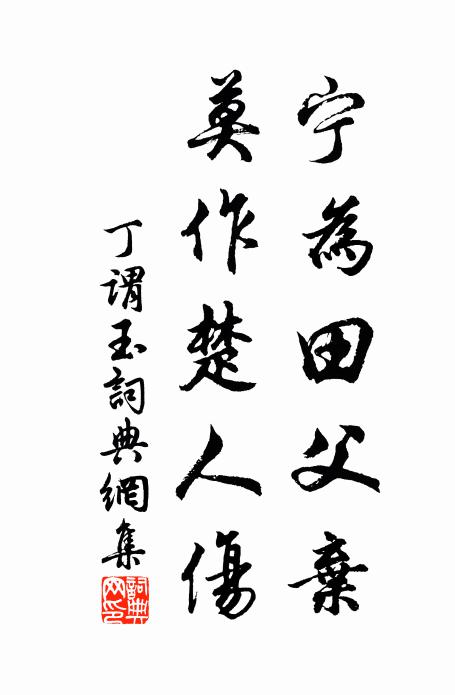 宁為田父棄
莫作楚人傷
丁謂玉詞典網集
詞典网印